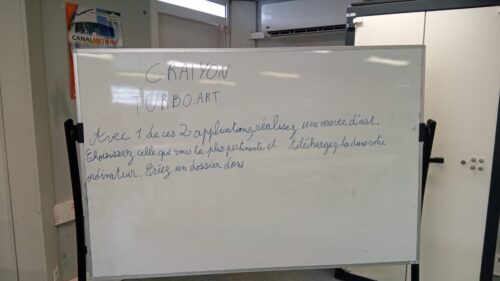 CANAL
CRAIYON
TURBOART
Avec 1 de ces 2 applications, réalisez une œuvre d'art.
Choisissez celle qui vous la plus pertinente et téléchargez la dans votre
ordinateur. Créez un dossier dans